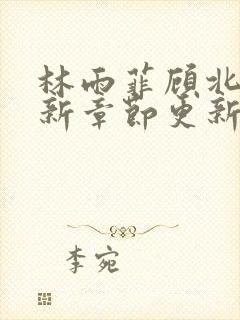 林雨菲顾北
新章节更新
李宛